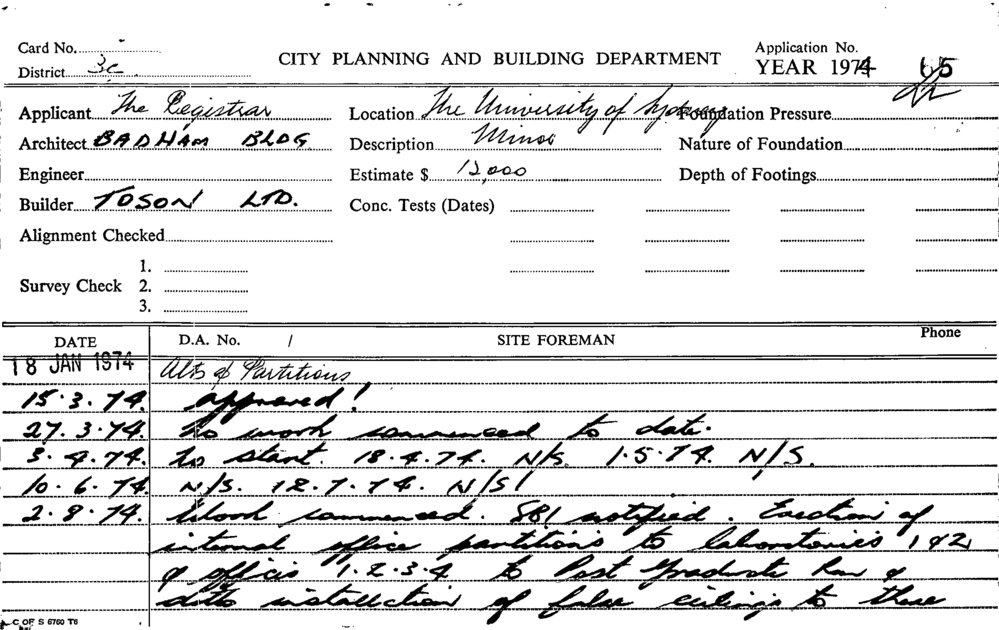 Card No.
District 3c
CITY PLANNING AND BUILDING DEPARTMENT
Application No.
YEAR 1974 65
Applicant The Registrar
Location The University of Sydney
Foundation Pressure
Architect BADHAM BLDG
Description Minor
Nature of Foundation
Engineer
Estimate $ 12,000
Depth of Footings
Builder TOSON LTD.
Conc. Tests (Dates)
Alignment Checked
Survey Check 1.
2.
3.
DATE D.A. No. / SITE FOREMAN Phone
18 JAN 1974 Alts & Partitions
15.3.74. approved!
27.3.74. No work commenced to date.
3.4.74. to start. 18.4.74. N/S. 1.5.74. N/S.
10.6.74. N/S. 12.7.74. N/S!
2.8.74. Work commenced. SBI notified. Erection of
internal office partitions to laboratories 1 & 2
& offices 1.2.3.4 to Post Graduate &
ditto installection of false ceilings to these
C OF S 6760 T6